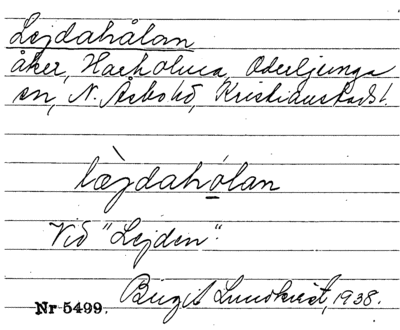 Lejdahålan
åker, Hackoluca, Oderljunga
sn, N. Åsbo hd, Kristianstads l.
læ̀jdahọlan
Vid "Lejden".
Birgit Lundkvist, 1938.
Nr 5499.